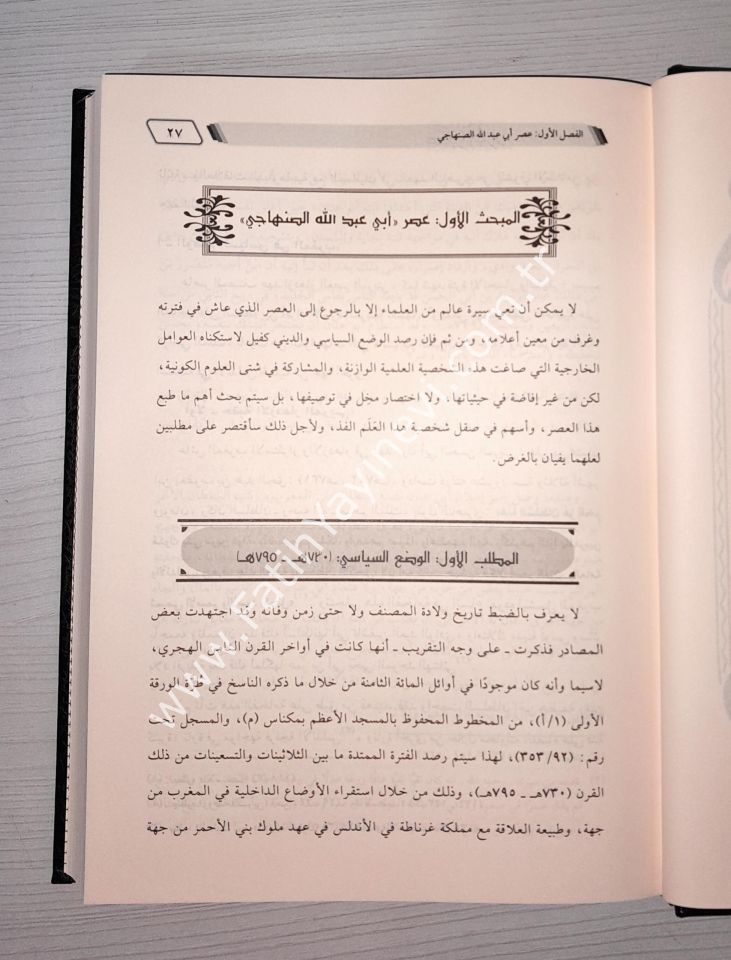 الفصل الأول: عصر أبي عبد الله الصنهاجي
٢٧
المبحث الأول: عصر «أبي عبد الله الصنهاجي»
لا يمكن أن تعي سيرة عالم من العلماء إلا بالرجوع إلى العصر الذي عاش في فترته
وغرف من معين أعلامه، ومن ثم فإن رصد الوضع السياسي والديني كفيل لاستكناه العوامل
الخارجية التي صاغت هذه الشخصية العلمية الوازنة، والمشاركة في شتى العلوم الكونية،
لكن من غير إفاضة في حيثياتها، ولا اختصار مخِل في توصيفها، بل سيتم بحث أهم ما طبع
هذا العصر، وأسهم في صقل شخصة هذا العَلَم الفذ، ولأجل ذلك سأقتصر على مطلبين
لعلهما يفيان بالغرض.
المطلب الأول: الوضع السياسي: (٧٣٠هـ - ٧٩٥هـ)
لا يعرف بالضبط تاريخ ولادة المصنف ولا حتى زمن وفاته وقد اجتهدت بعض
المصادر فذكرت ـ على وجه التقريب ـ أنها كانت في أواخر القرن الثامن الهجري،
لاسيما وأنه كان موجودًا في أوائل المائة الثامنة من خلال ما ذكره الناسخ في طرة الورقة
الأولى (١/أ)، من المخطوط المحفوظ بالمسجد الأعظم بمكناس (م)، والمسجل تحت
رقم: (٣٥٣/٩٢)، لهذا سيتم رصد الفترة الممتدة ما بين الثلاثينات والتسعينات من ذلك
القرن (٧٣٠هـ ـ ٧٩٥هـ)، وذلك من خلال استقراء الأوضاع الداخلية في المغرب من
جهة، وطبيعة العلاقة مع مملكة غرناطة في الأندلس في عهد ملوك بني الأحمر من جهة
www.FatihYayinevi.com.tr